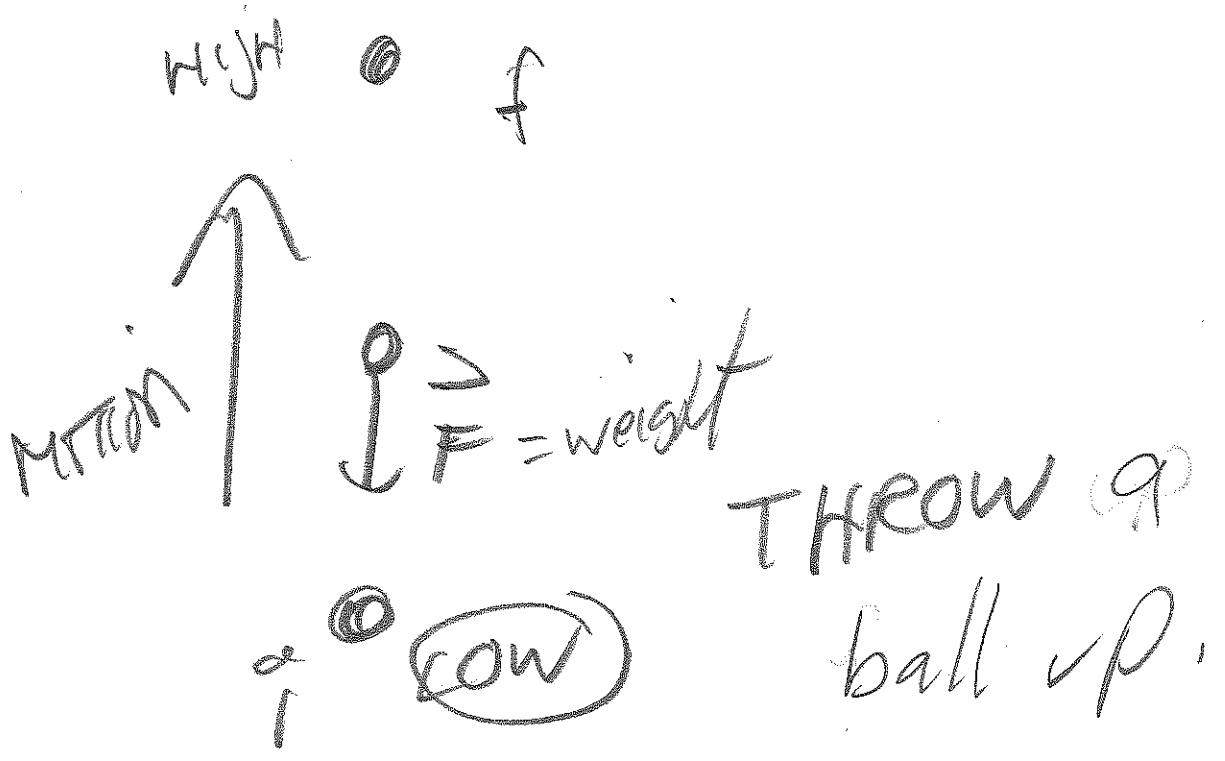 HIGH
f
MOTION
F = weight
THROW a
ball up.
i
LOW